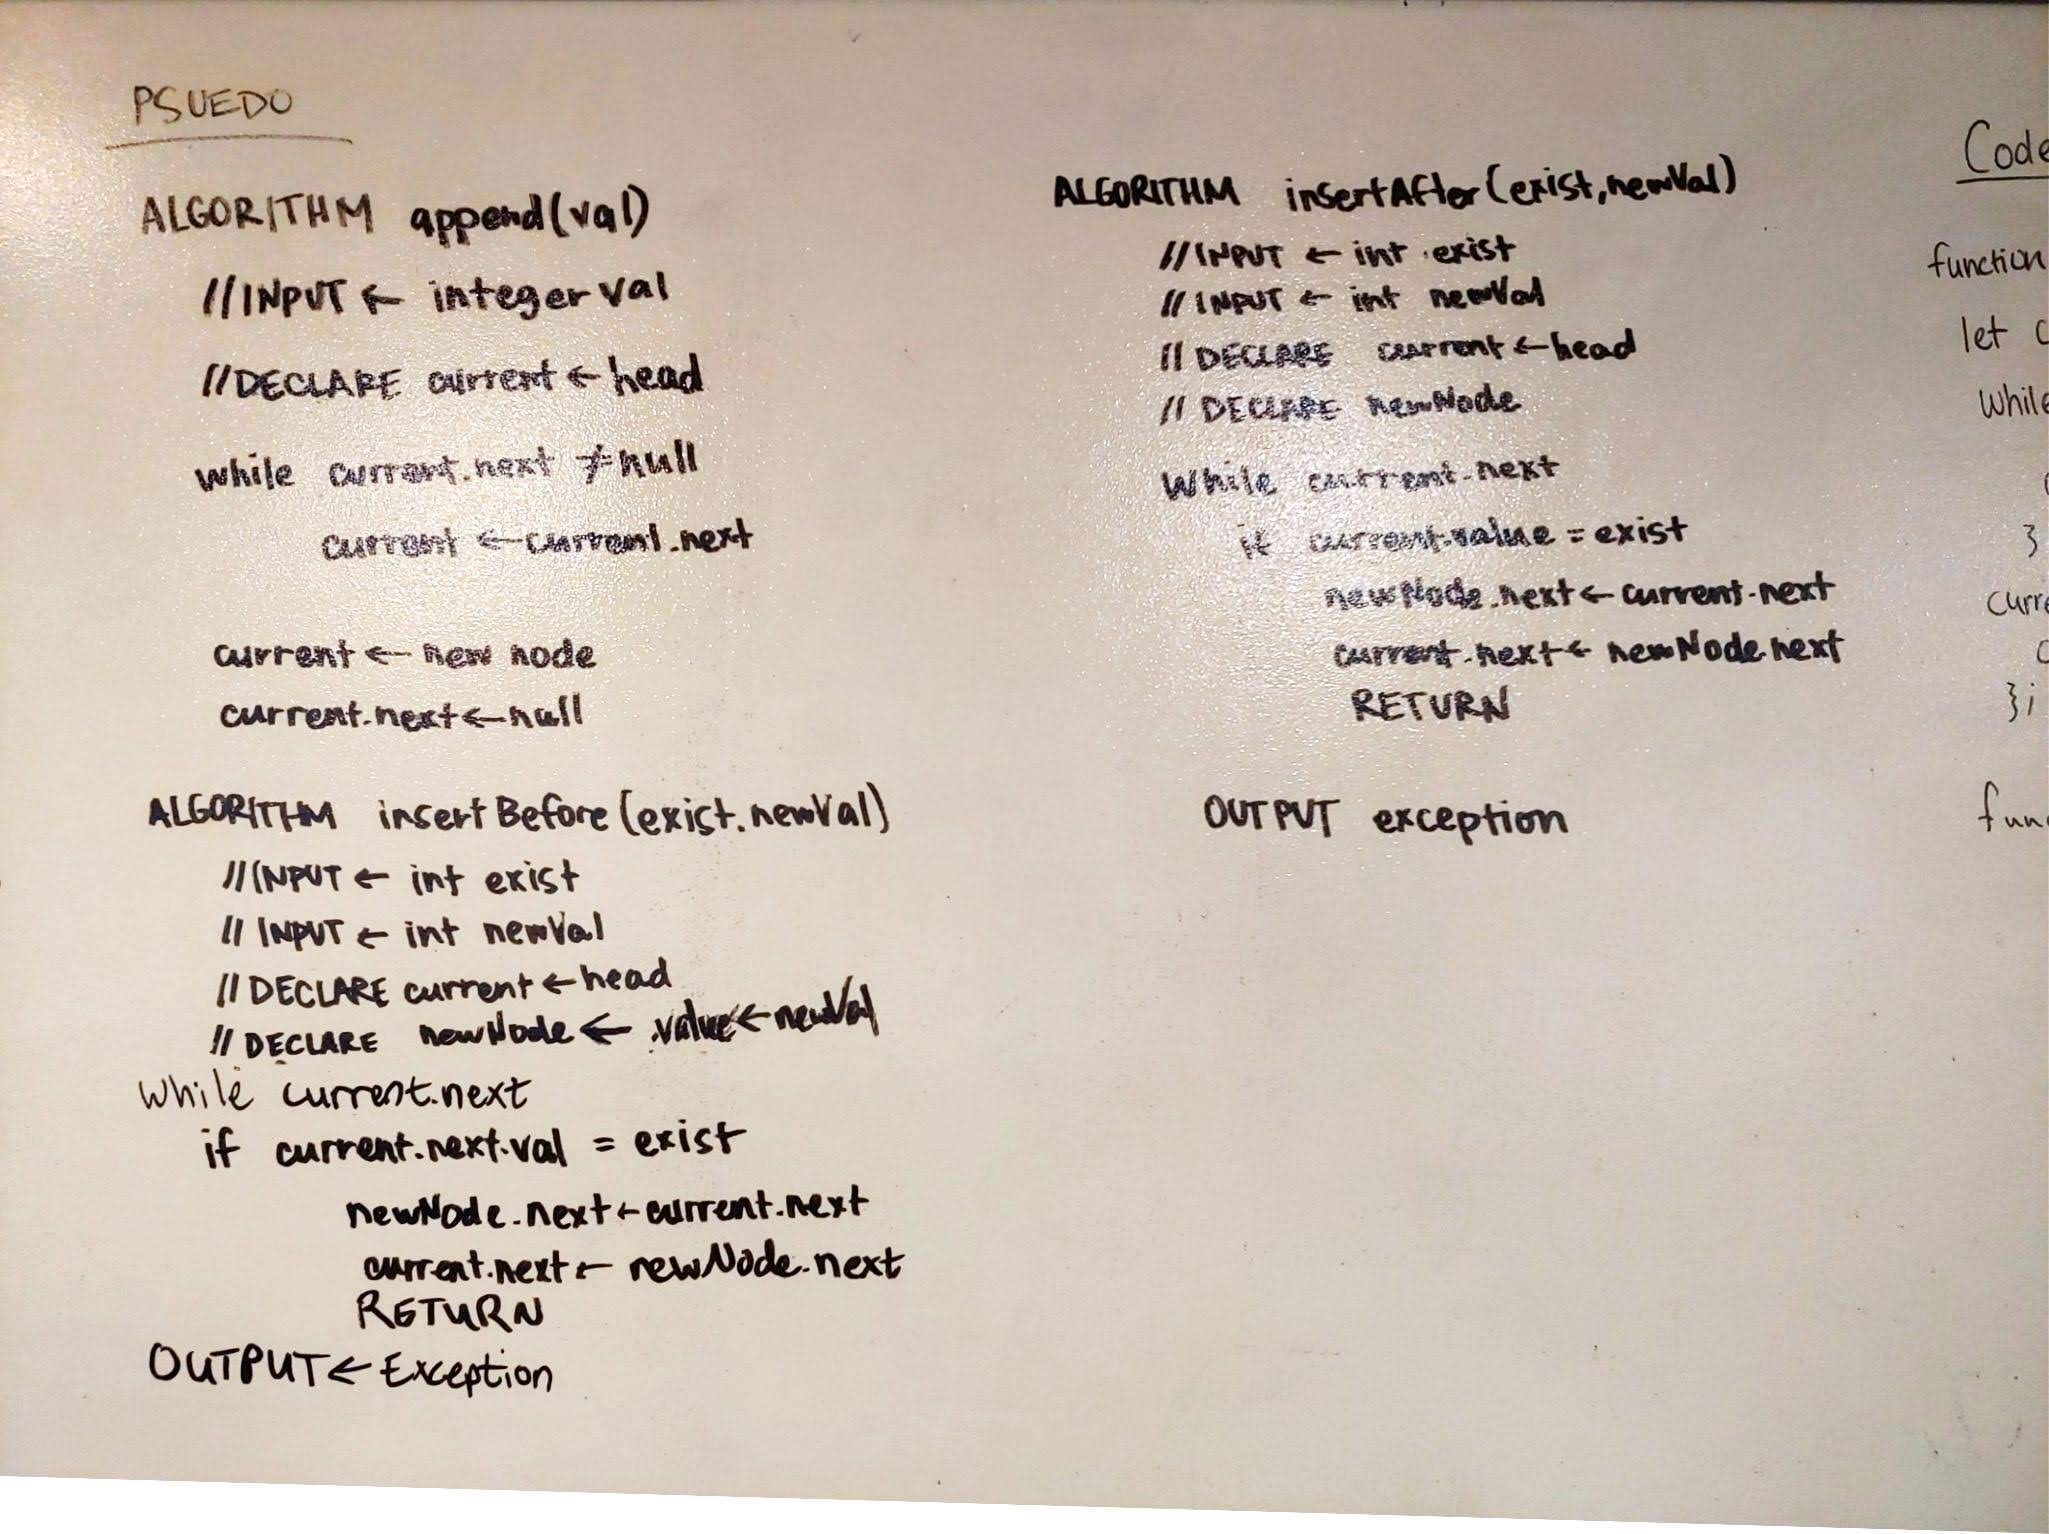 PSUEDO
ALGORITHM append(val)
//INPUT ← integer val
//DECLARE current ← head
while current.next ≠ null
current ← current.next
current ← new node
current.next ← null
ALGORITHM insertBefore(exist.newVal)
//INPUT ← int exist
//INPUT ← int newVal
//DECLARE current ← head
//DECLARE newNode ← .value ← newVal
While current.next
if current.next.val = exist
newNode.next ← current.next
current.next ← newNode.next
RETURN
OUTPUT ← Exception
ALGORITHM insertAfter(exist,newVal)
//INPUT ← int exist
//INPUT ← int newVal
//DECLARE current ← head
//DECLARE newNode
While current.next
if current.value = exist
newNode.next ← current.next
current.next ← newNode.next
RETURN
OUTPUT exception
Code
function
let
while
}
};